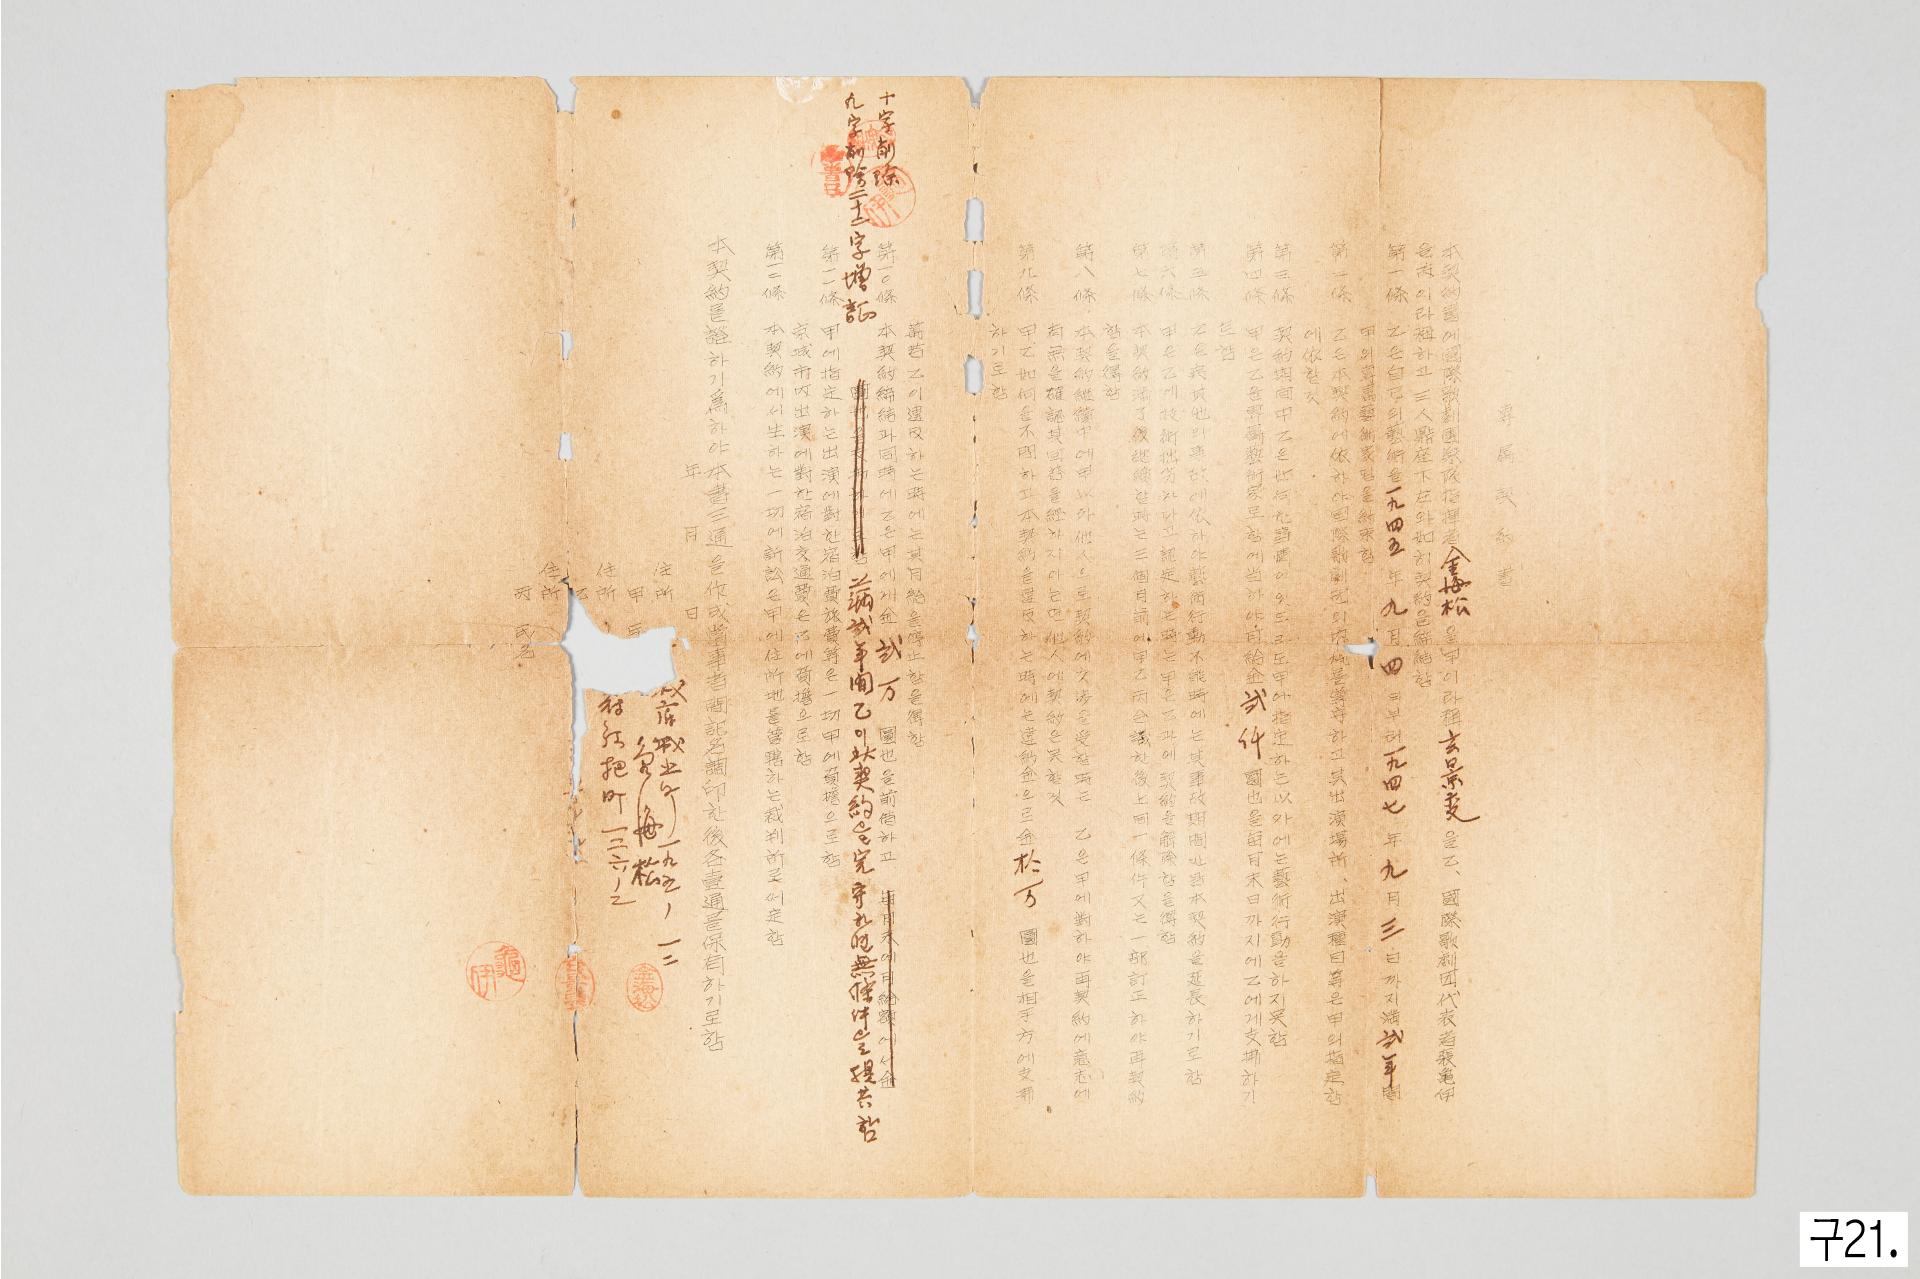 專屬契約書
本契約을에國際歌劇團樂隊指揮者 金海松 을甲이라稱 玄景燮 을乙、國際歌劇団代表者張龜伊
을丙이라稱하고三人點座下左와如히契約을締結함
第一條 乙은自己의藝術을 一九四五 年 九 月 四 日부터 一九四七 年 九 月 三 日까지滿 弐年 間
甲의專屬藝術家됨을約束함
第二條 乙은本契約에依하야國際歌劇団의 를尊守하고其出演場所、出演種目等은甲의指定함
에依할것
第三條 契約期間中乙은如何한 이잇드래도甲이指定하는以外에는藝術行動을하지못함
第四條 甲은乙을專屬藝術家로함에当하야月給金 弐仟 圓也을每月末日까지에乙에게支拂하기
로함
第五條 乙은病其他의事故에依하야藝術行動不能時에는其事故期間만큼本契約을延長하기로함
第六條 甲은乙에技術拙劣하다고認定하는時는甲은乙과에契約을解除함을得함
第七條 本契約滿了後継續할時는三個月前에甲乙丙合議한後上同一條件又는一部訂正하야再契約
함을得함
第八條 本契約継續中에甲以外他人으로契約에交涉을受한時는 乙은甲에對하야再契約에意志에
有無을確認其回答을經하지아는면他人에契約은못할것
第九條 甲乙如何을不問하고本契約을違反하는時에는違約金으로金 拾万 圓也을相手方에支拂
하기로함
萬若乙이違反하는時에는其月給을停止함을得함
第一〇條 本契約締結과同時에乙은甲에게金 弐万 圓也을前借하고 每月末에月給額에서金
十字削除
九字削除二十二字增記
滿弐年間乙이本契約을完守 無條件을提共함
第一一條 甲에指定하는出演에對한宿泊費旅費等은一切甲에負擔으로함
京城市內出演에對한宿泊交通費은乙에負擔으로함
第一二條 本契約에서生하는一切에訴訟은甲에住所地를管轄하는裁判所로써定함
本契約을證하기爲하야本書三通을作成當事者間記名調印한後各壹通을保有하기로함
年 月 日
住所
甲 海松
住所 町一三六ノ乙
乙
住所
丙 氏名
구21.